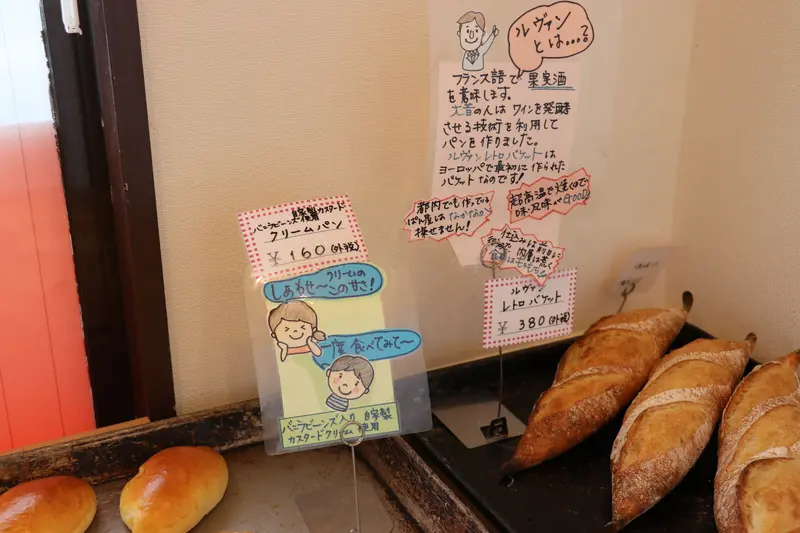 ルヴァン
とは…?
フランス語で果実酒
を意味します。
大昔の人は ワインを発酵
させる技術を利用して
パンを作りました。
ルヴァンレトロバケットは
ヨーロッパで最初に作られた
バケットなのです!
都内でも作っている
ぱん屋はなかなか
探せません!
超高温で焼くので
味・風味がGOOD!
仕込みは前日に
ルヴァン
レトロバケット
¥380(外税)
自家製カスタード
バニラビーンズ使用
クリームパン
¥160(外税)
クリームの
しあわせ〜この甘さ!
一度食べてみて〜
バニラビーンズ入り 自家製
カスタードクリーム使用